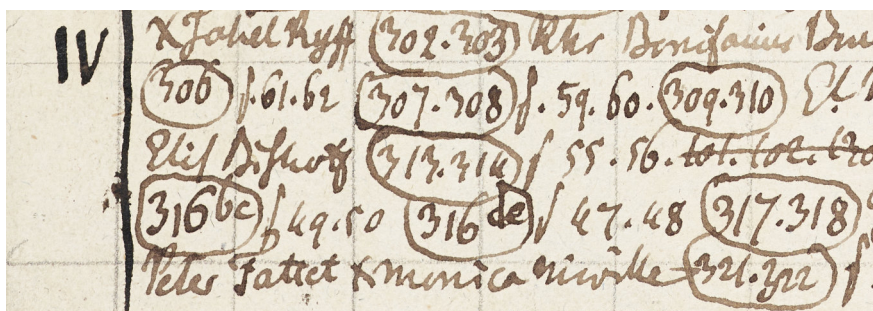 IV
x Johel Ryff 302.303 Bonifacius
306 f. 61.62 307.308 f. 59.60. 309.310 El.
Elis Bishoff 313.314 f 55.56.
316bc f 49.50 316de f 47.48 317.318
Peter x monica 321.322 f